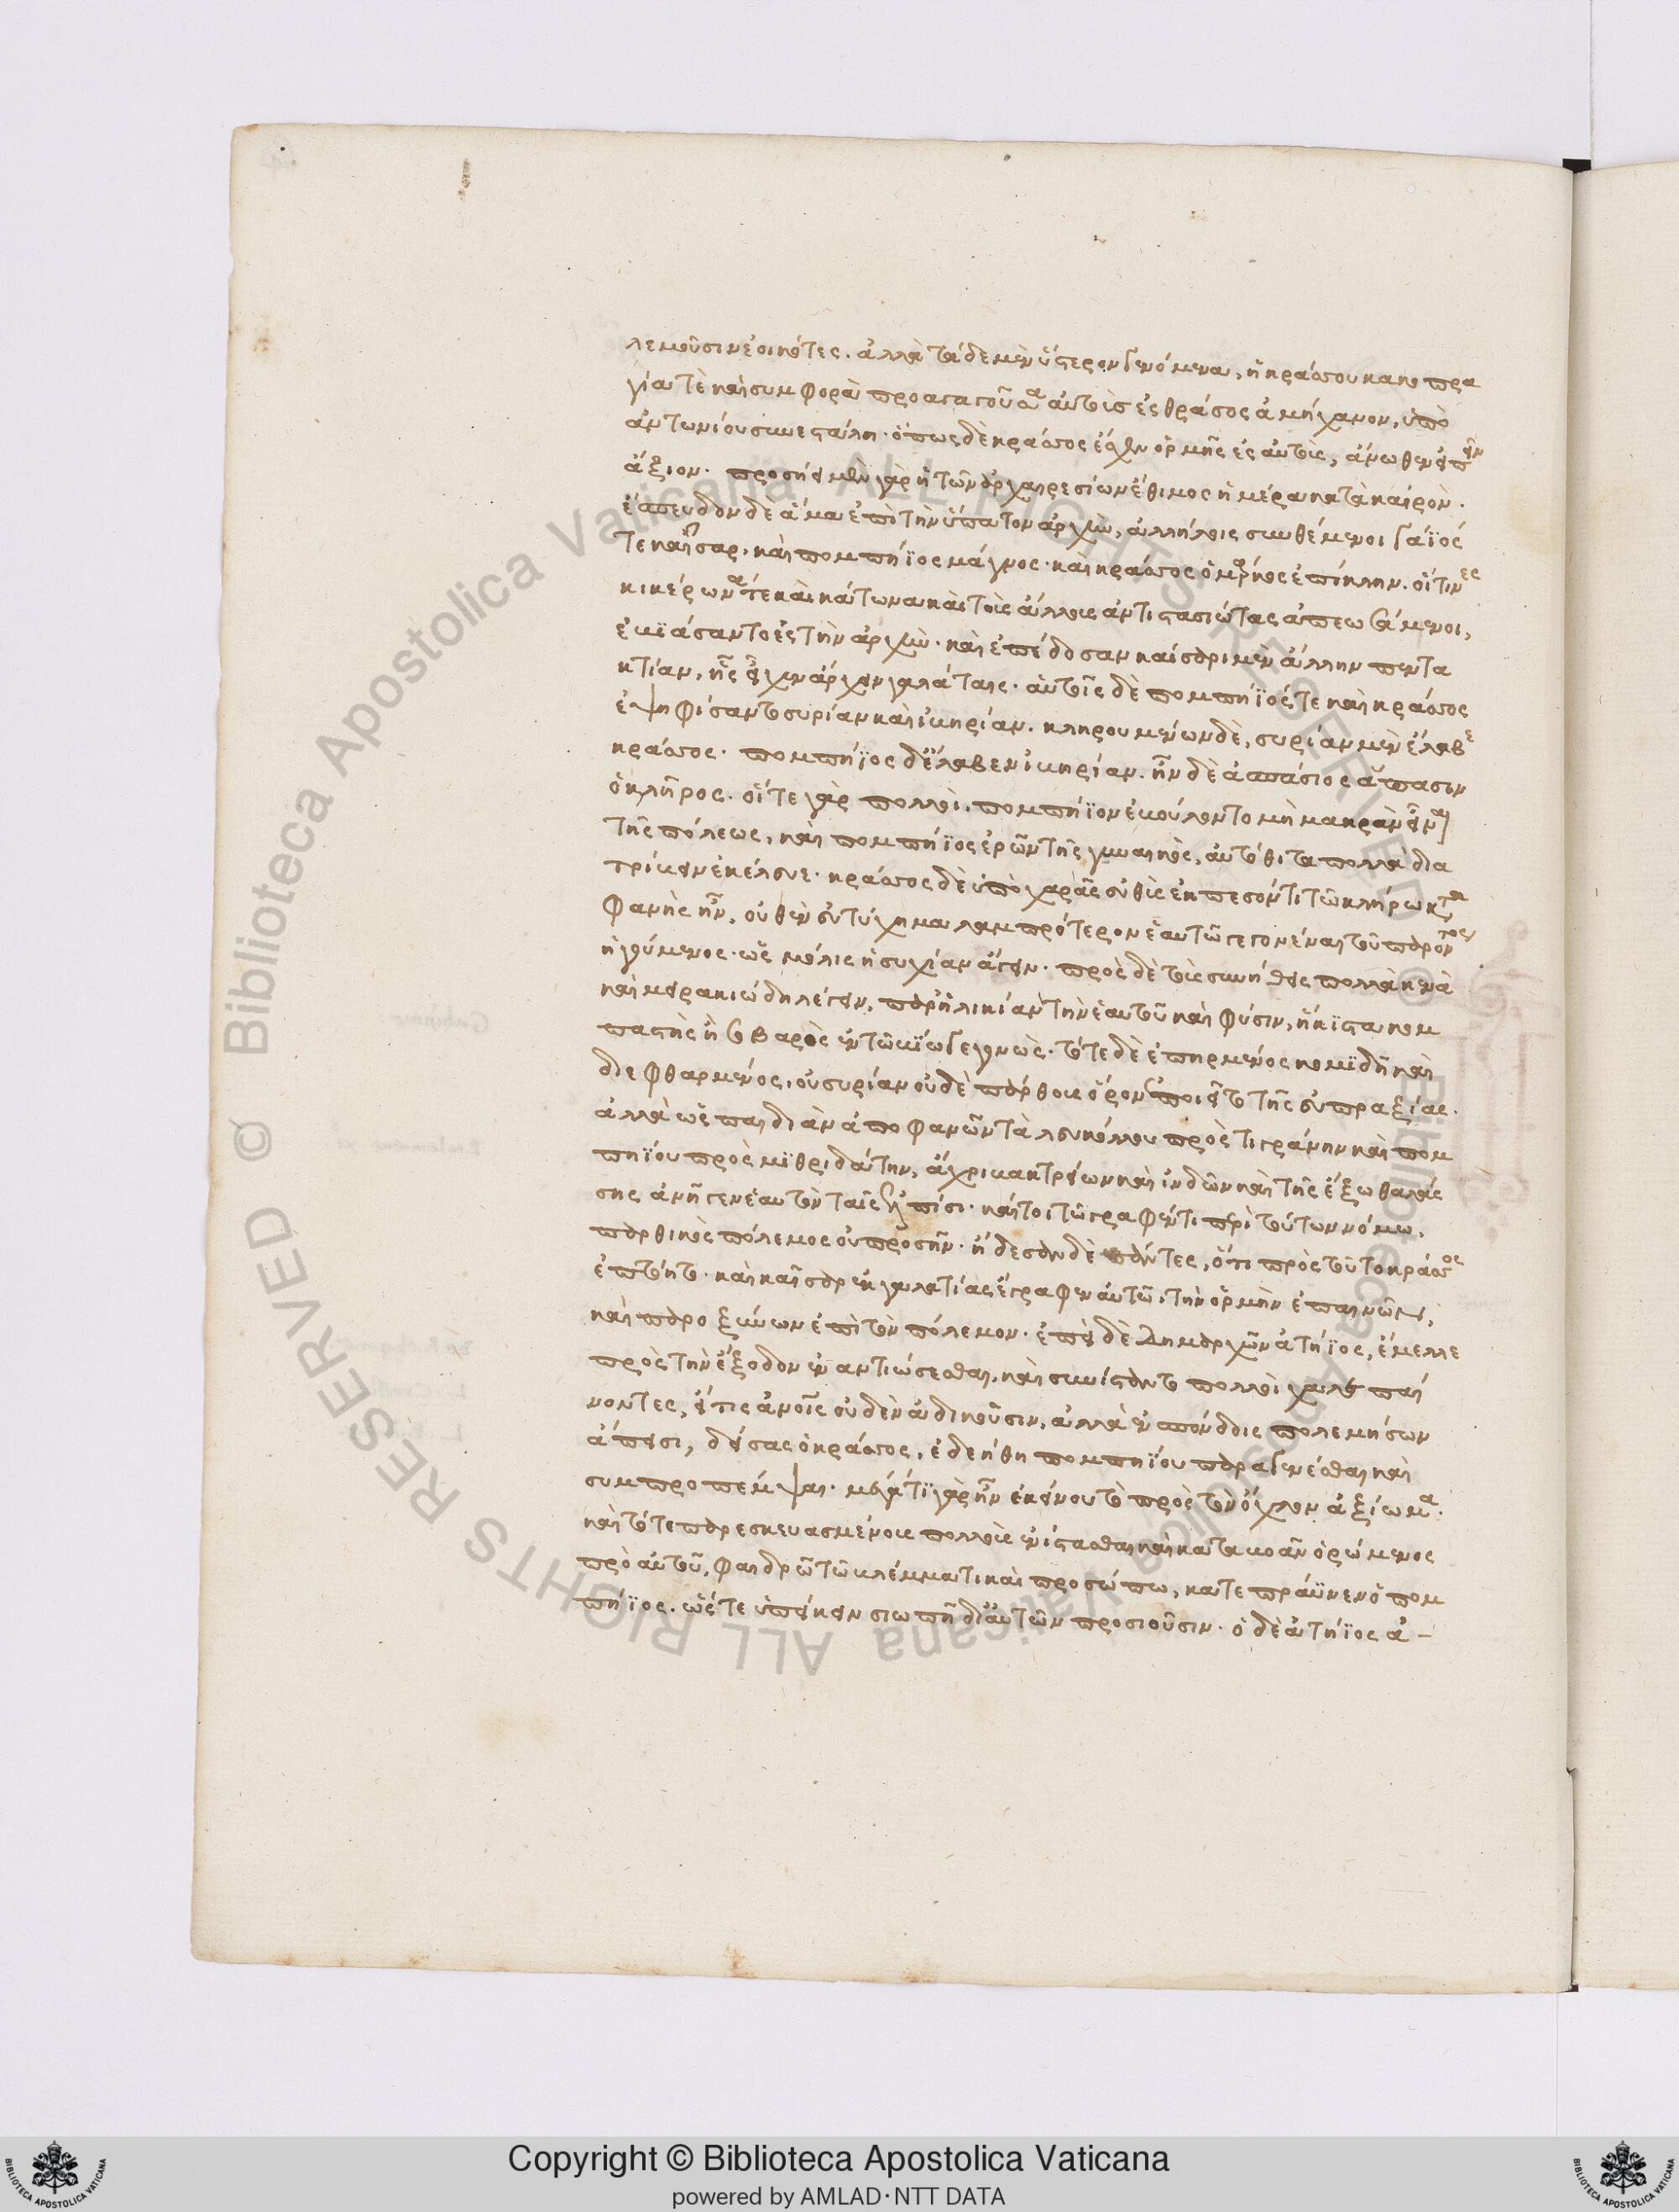 λεμοῦσιν ἐοικότες. ἀλλὰ τάδε μὲν ὕστερον γενόμενα, ἡ κράσσου κακοπρα
γία τὲ καὶ συμφορὰ προαγαγοῦσα αὐτοὺς ἐς θράσος ἀμήχανον, ὑπὸ
ἀντωνίου συνεστάλη. ὅπως δὲ κράσσος ἔσχεν ὁρμῆς ἐς αὐτοὺς, ἄνωθεν εἰπεῖν
ἄξιον. προσῄει μὲν γὰρ ἡ τῶν ἀρχαιρεσίων ἔθιμος ἡμέρα κατὰ καιρόν.
ἔσπευδον δὲ ἅμα ἐπὶ τὴν ὕπατον ἀρχὴν, ἀλλήλοις συνθέμενοι γάϊός
τε καῖσαρ. καὶ πομπήϊος μάγνος. καὶ κράσσος ὁ μάρκος ἐπίκλην. οἵτινες
κικέρωνά τε καὶ κάτωνα καὶ τοὺς ἄλλους ἀντιστασιώτας ἀπεωσάμενοι,
ἐβιάσαντο ἐς τὴν ἀρχήν. καὶ ἐπέδοσαν καίσαρι μὲν ἄλλην πεντα
ετίαν, ἧς εἶχεν ἄρχειν γαλάταις. αὐτοῖς δὲ πομπήϊός τε καὶ κράσσος
ἐψηφίσαντο συρίαν καὶ ἰβηρίαν. κληρουμένων δὲ, συρίαν μὲν ἔλαβε
κράσσος. πομπήϊος δ' ἔλαβεν ἰβηρίαν. ἦν δὲ ἀσπάσιος ἅπασιν
ὁ κλῆρος. οἵ τε γὰρ πολλοὶ, πομπήϊον ἐβούλοντο μὴ μακρὰν εἶναι
τῆς πόλεως, καὶ πομπήϊος ἐρῶν τῆς γυναικὸς, αὐτόθι τὰ πολλὰ δια
τρίβειν ἔμελλε. κράσσος δὲ ὑπὸ χαρᾶς εὐθὺς ἐκπεσόντι τῶ κλήρω κατα
φανὴς ἦν, οὐθὲν εὐτύχημα λαμπρότερον ἑαυτῶ γεγονέναι τοῦ παρόντος
ἡγούμενος. ὡς μόλις ἡσυχίαν ἄγειν. πρὸς δὲ τοὺς συνήθεις πολλὰ κενὰ
καὶ μειρακιώδη λέγειν, παρ' ἡλικίαν τὴν ἑαυτοῦ καὶ φύσιν, ἥκιστα κομ
παστὴς ἢ σοβαρὸς ἐν τῶ βίω γεγονώς. τότε δὲ ἐπηρμένος κομιδῆ καὶ
διεφθαρμένος, οὐ συρίαν οὐδὲ πάρθους ὅρον ἐποιεῖτο τῆς εὐπραξίας.
ἀλλὰ ὡς παιδιὰν ἀποφανῶν τὰ λευκόλλου πρὸς τιγράνην καὶ πομ
πηΐου πρὸς μϊθριδάτην, ἄχρι βακτρείων καὶ ἰνδῶν καὶ τῆς ἔξω θαλάσ
σης ἀνῆγεν ἑαυτὸν ταῖς ἐλπίσι. καίτοι τῶ γραφέντι περὶ τούτων νόμω,
παρθικὸς πόλεμος οὐ προσῆν. ᾔδεσαν δὲ πάντες, ὅτι πρὸς τοῦτο κράσσος
ἐπτόητο. καὶ καῖσαρ ἐκ γαλατίας ἔγραφεν αὐτῶ, τὴν ὁρμὴν ἐπαινῶν,
καὶ παροξύνων ἐπὶ τὸν πόλεμον. ἐπεὶ δὲ δημαρχῶν ἀτήϊος, ἔμελλε
πρὸς τὴν ἔξοδον ἐναντιώσεσθαι, καὶ συνίσταντο πολλοὶ χαλεπαί
νοντες, εἴ τις ἀνθρώποις οὐδὲν ἀδικοῦσιν, ἀλλὰ ἐνσπόνδοις πολεμήσων
ἄπεισι, δείσας ὁ κράσσος, ἐδεήθη πομπηΐου παραγενέσθαι καὶ
συμπροπέμψαι. μέγα τϊ γὰρ ἦν ἐκείνου τὸ πρὸς τὸν ὄχλον ἀξίωμα.
καὶ τότε παρεσκευασμένους πολλοὺς ἐνίστασθαι καὶ καταβοᾶν ὁρώμενος
πρὸ αὐτοῦ, φαιδρῶ τῶ βλέμματι καὶ προσώπω, κατεπράϋνεν ὁ πομ
πήϊος. ὥστε ὑπείκειν σιωπῆ δι' αὐτῶν προσιοῦσιν. ὁ δὲ ἀτήϊος ἀ-
Copyright © Biblioteca Apostolica Vaticana
powered by AMLAD·NTT DATA